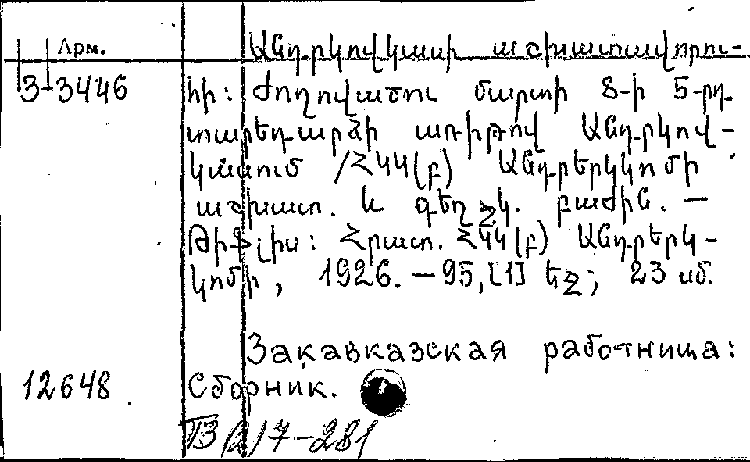 Арм.
Անդրկովկասի աշխատավորու-
3-3446
հի: Ժողովածու մարտի 8-ի 5-րդ
տարեդարձի առիթով Անդրկով-
կասում /ՀԿԿ(բ) Անդրերկկոմի
աշխատ. և գեղջկ. բաժին. —
Թիֆլիս: Հրատ. ՀԿԿ(բ) Անդրերկ-
կոմի, 1926. — 95, [1] եջ; 23 սմ.
Закавказская работница:
12648
Сборник.
ТЗ 12/7-281